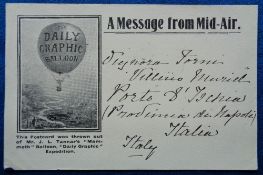 DAILY
GRAPHIC
BALLOON
This Postcard was thrown out
of Mr. J. L. Tanner's "Mam-
moth" Balloon, "Daily Graphic"
Expedition.
A Message from Mid-Air.
Signora
Villino
Porto d'Ischia
(Provincia di Napoli)
Italia
Italy